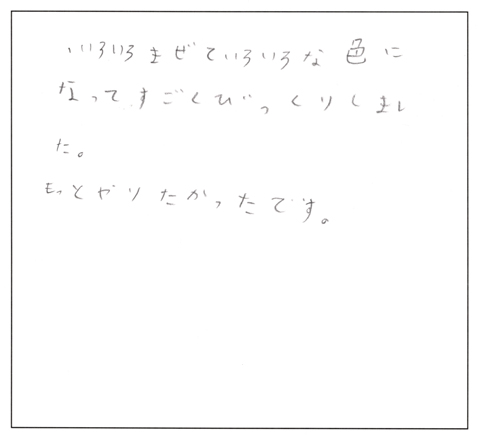 いろいろまぜていろいろな色に
なってすごくびっくりしまし
た。
もっとやりたかったです。